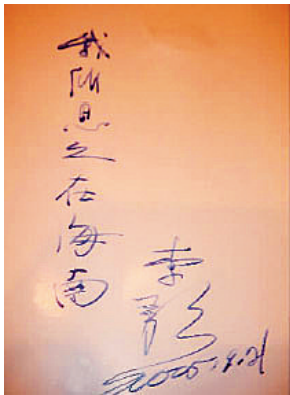 我所思之在海南
李敖
2005.9.21